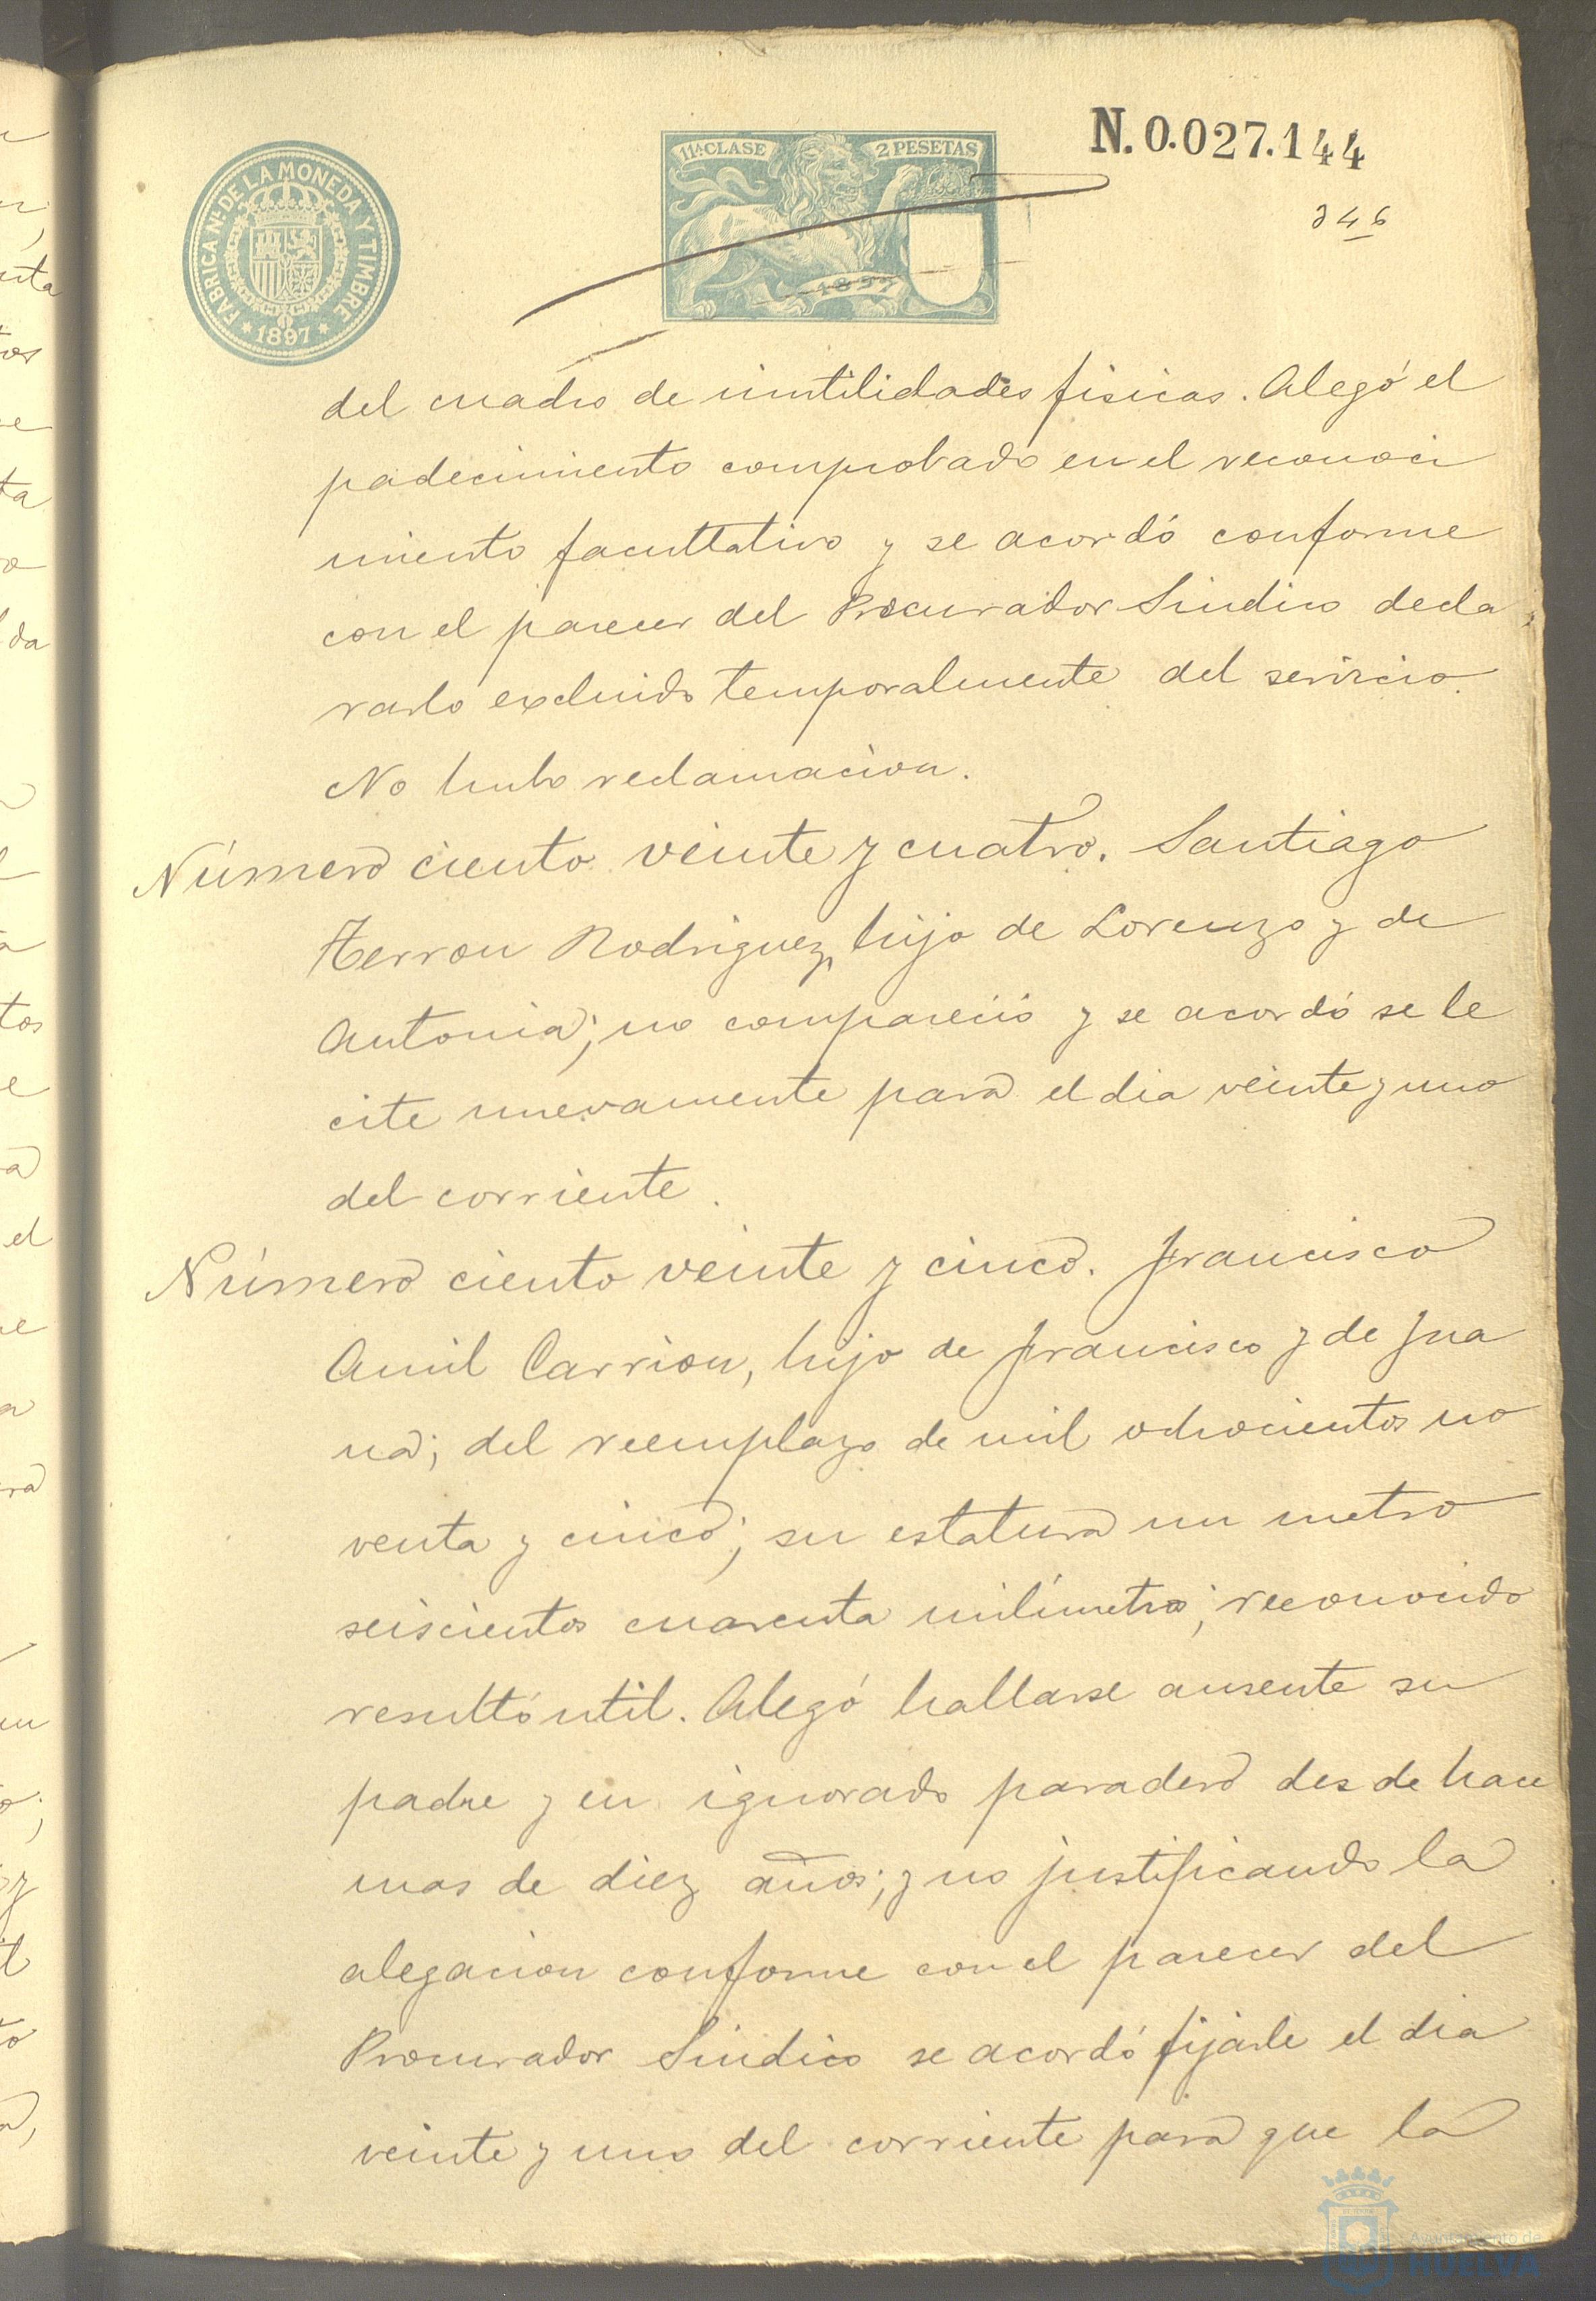 N. 0.027.144
11ª CLASE 2 PESETAS
FABRICA Nl. DE LA MONEDA Y TIMBRE
* 1897 *
1897
346
del cuadro de inutilidades fisicas. Alegó el
padecimiento comprobado en el reconoci
miento facultativo y se acordó conforme
con el parecer del Procurador Sindico decla
rarlo excluido temporalmente del servicio.
No hubo reclamacion.
Número ciento veinte y cuatro. Santiago
Terron Rodriguez, hijo de Lorenzo y de
Antonia; no compareció y se acordó se le
cite nuevamente para el dia veinte y uno
del corriente.
Número ciento veinte y cinco. Francisco
Amil Carrion, hijo de Francisco y de Jua
na; del reemplazo de mil ochocientos no
venta y cinco; su estatura un metro
seiscientos cuarenta milimetros; reconocido
resultó util. Alegó hallarse ausente su
padre y en ignorado paradero desde hace
mas de diez años; y no justificando la
alegacion conforme con el parecer del
Procurador Sindico se acordó fijarle el dia
veinte y uno del corriente para que la
Ayuntamiento de
HUELVA